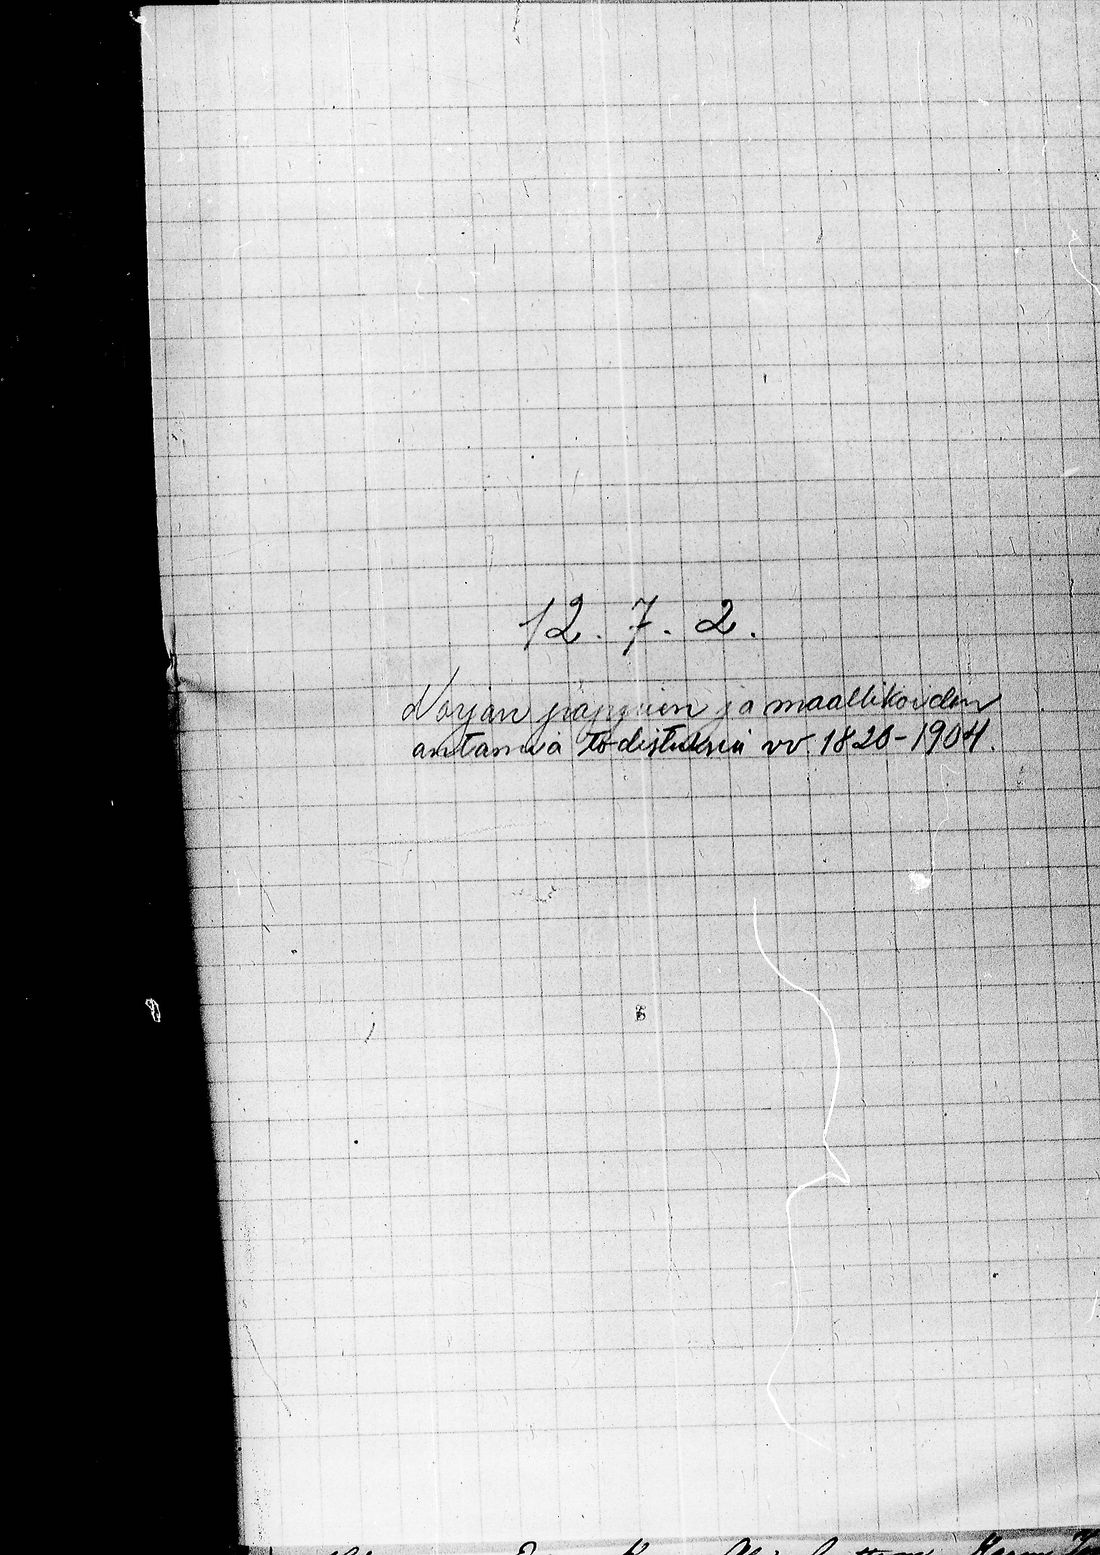 12. 7. 2.
Norjan pappien ja maallikoiden
antamia todistuksia vv. 1820-1904.